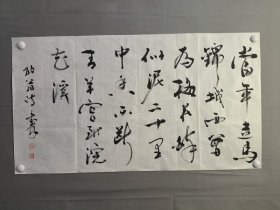 當年走馬
錦城西曾
為梅花醉
似泥二十里
中香不斷
青羊宮到浣
花溪
放翁詩